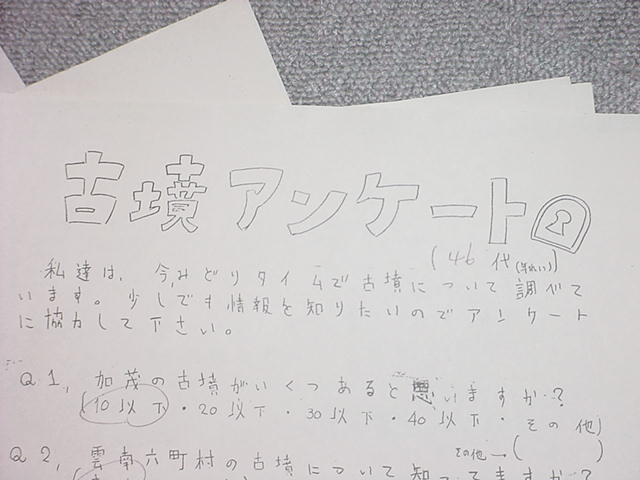 古墳アンケート
(46代(年れい))
私達は、今、みどりタイムで古墳について調べて
います。少しでも情報を知りたいのでアンケート
に協力して下さい。
Q1、加茂の古墳がいくつあると思いますか?
(10以下・20以下・30以下・40以下・その他)
その他→( )
Q2、雲南六町村の古墳について知ってますか?